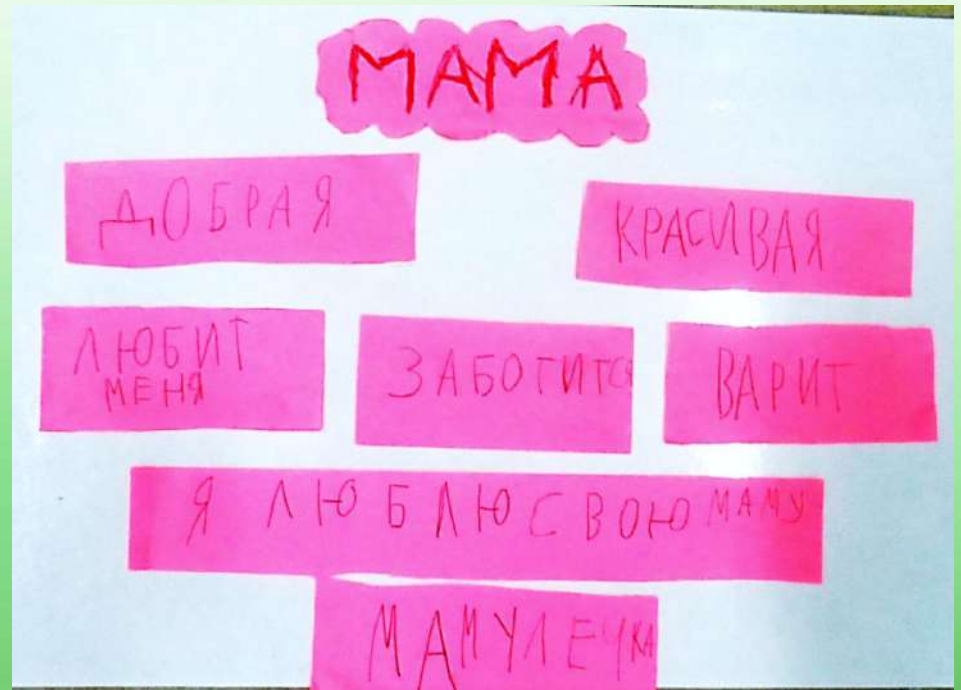 МАМА
ДОБРАЯ КРАСИВАЯ
ЛЮБИТ
МЕНЯ
ЗАБОТИТСЯ
ВАРИТ
Я ЛЮБЛЮ СВОЮ МАМУ
МАМУЛЕЧКА